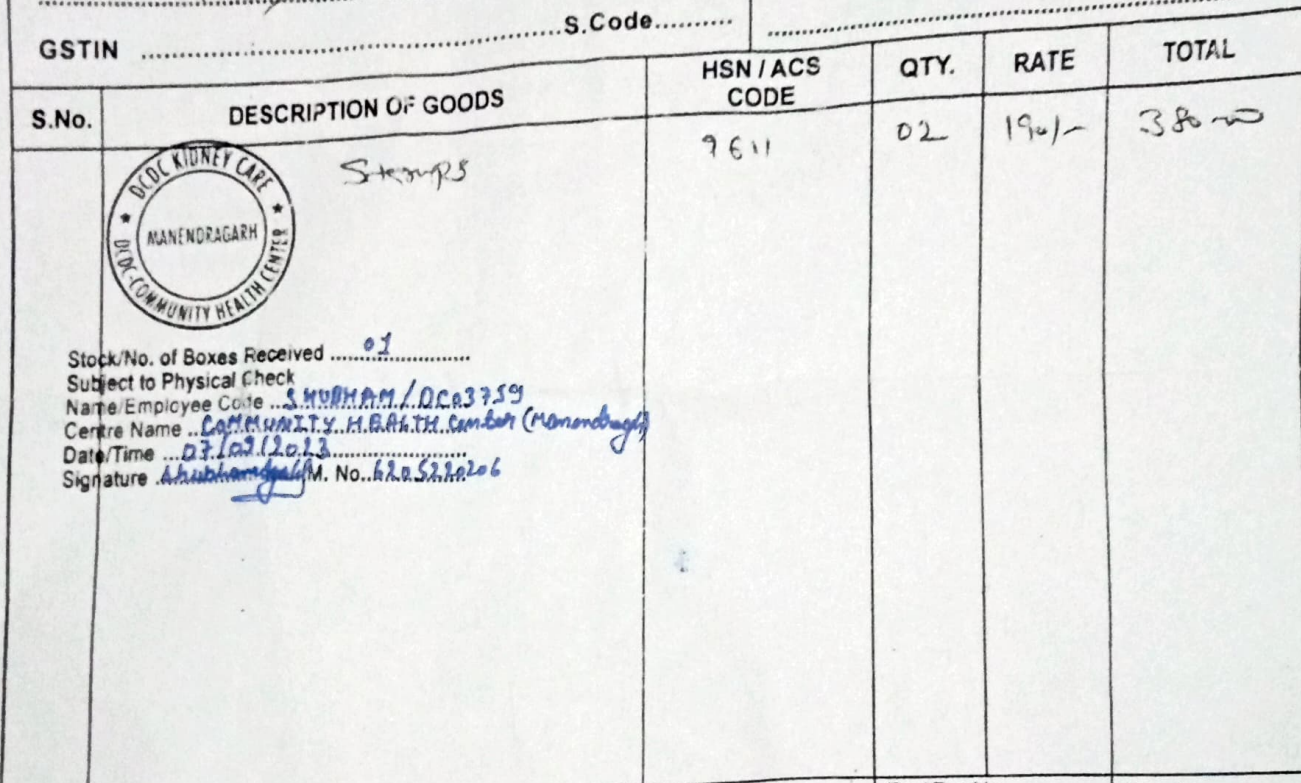 GSTIN ........ S.Code..........
S.No. DESCRIPTION OF GOODS HSN / ACS CODE QTY. RATE TOTAL
Stamps 9611 02 190/- 380-00
DCDC KIDNEY CARE
MANENDRAGARH
DCDC-COMMUNITY HEALTH CENTER
Stock/No. of Boxes Received ....01....
Subject to Physical Check
Name/Employee Code ..SHUBHAM/DC03759
Centre Name ..COMMUNITY HEALTH Center (Manendragh)
Date/Time ...07/09/2023....
Signature .Shubham M. No..6205220206